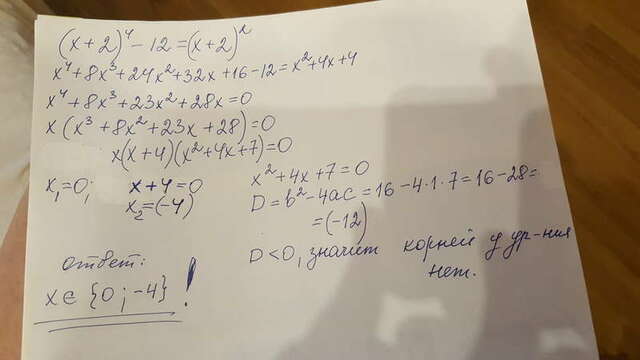 (x+2)⁴-12=(x+2)²
x⁴+8x³+24x²+32x+16-12=x²+4x+4
x⁴+8x³+23x²+28x=0
x(x³+8x²+23x+28)=0
x(x+4)(x²+4x+7)=0
x₁=0; x+4=0
x₂=(-4)
x²+4x+7=0
D=b²-4ac=16-4·1·7=16-28=
=(-12)
D<0, значит корней у ур-ния
нет.
Ответ:
x∈{0;-4}.